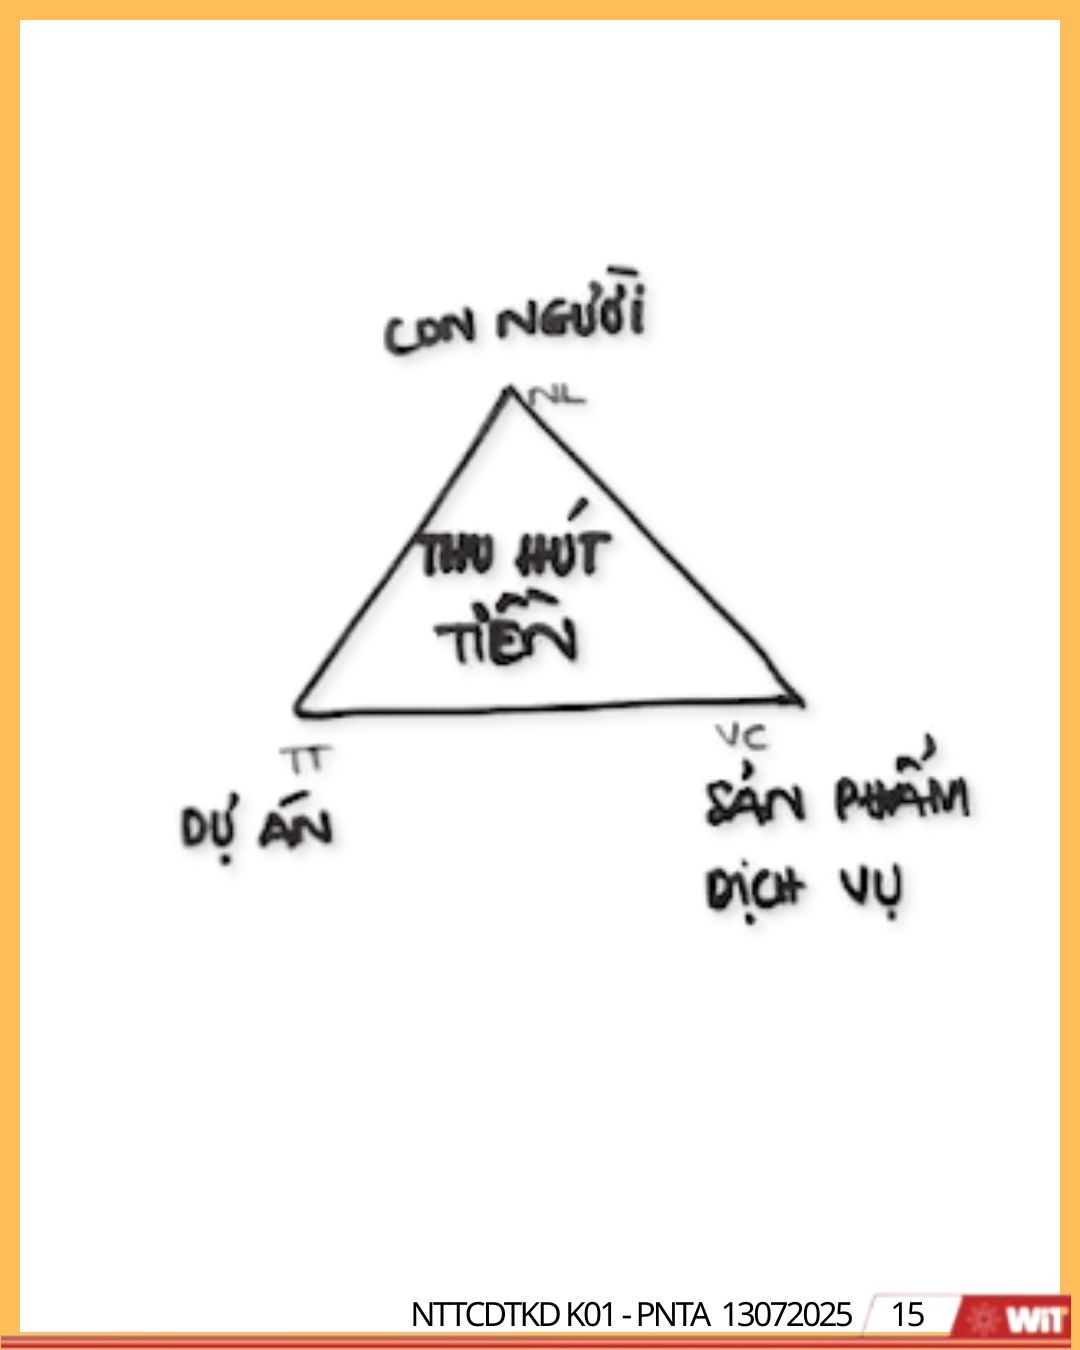 CON NGƯỜI
NL
THU HÚT
TIỀN
TT
VC
DỰ ÁN
SẢN PHẨM
DỊCH VỤ
NTTCDTKD K01 - PNTA 13072025 15 WiT